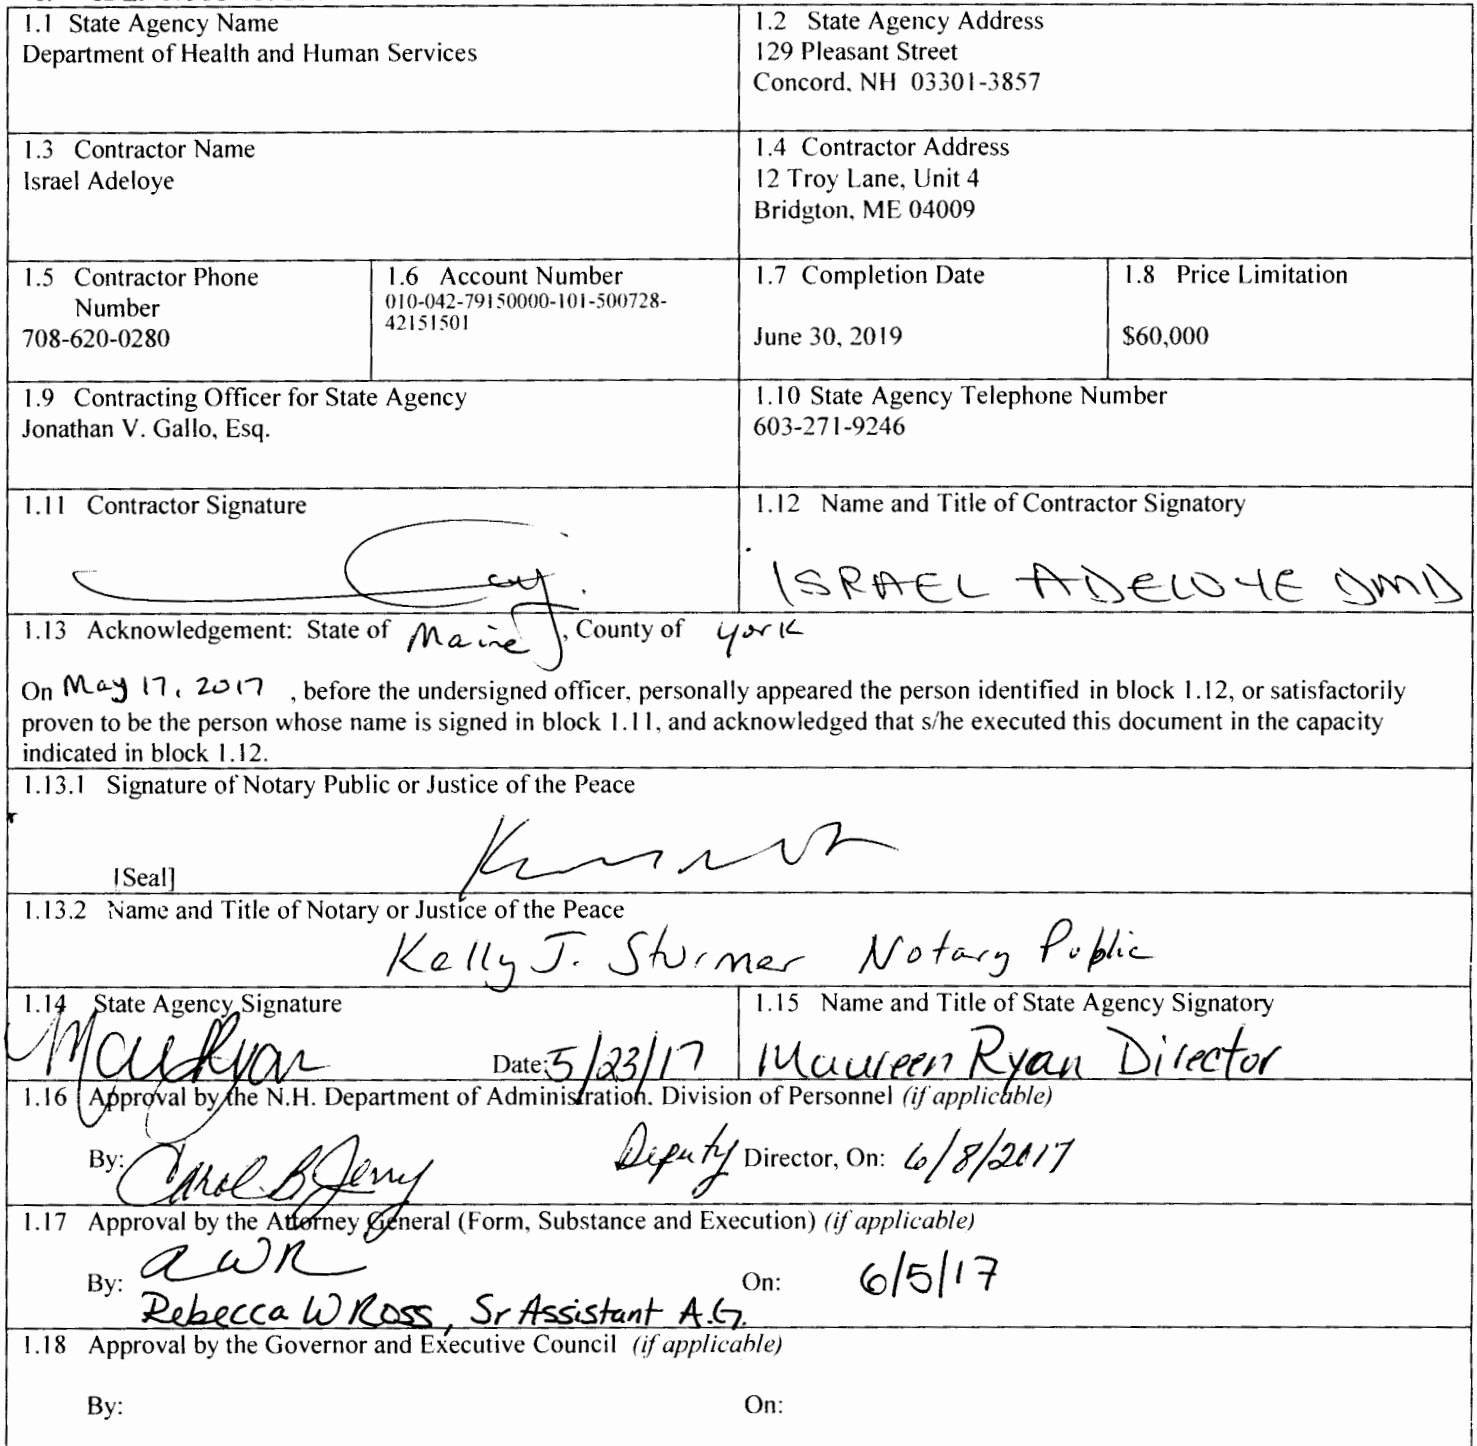 1.1 State Agency Name
Department of Health and Human Services
1.2 State Agency Address
129 Pleasant Street
Concord, NH 03301-3857
1.3 Contractor Name
Israel Adeloye
1.4 Contractor Address
12 Troy Lane, Unit 4
Bridgton, ME 04009
1.5 Contractor Phone
Number
708-620-0280
1.6 Account Number
010-042-79150000-101-500728-
42151501
1.7 Completion Date
June 30, 2019
1.8 Price Limitation
$60,000
1.9 Contracting Officer for State Agency
Jonathan V. Gallo, Esq.
1.10 State Agency Telephone Number
603-271-9246
1.11 Contractor Signature
1.12 Name and Title of Contractor Signatory
ISRAEL ADELOYE DMD
1.13 Acknowledgement: State of Maine, County of York
On May 17, 2017, before the undersigned officer, personally appeared the person identified in block 1.12, or satisfactorily
proven to be the person whose name is signed in block 1.11, and acknowledged that s/he executed this document in the capacity
indicated in block 1.12.
1.13.1 Signature of Notary Public or Justice of the Peace
[Seal]
1.13.2 Name and Title of Notary or Justice of the Peace
Kelly J. Sturmer Notary Public
1.14 State Agency Signature
Date: 5/23/17
1.15 Name and Title of State Agency Signatory
Maureen Ryan Director
1.16 Approval by the N.H. Department of Administration, Division of Personnel (if applicable)
By: Carol B Jerry Deputy Director, On: 6/8/2017
1.17 Approval by the Attorney General (Form, Substance and Execution) (if applicable)
By: RWR On: 6/5/17
Rebecca W Ross, Sr Assistant A.G.
1.18 Approval by the Governor and Executive Council (if applicable)
By: On: